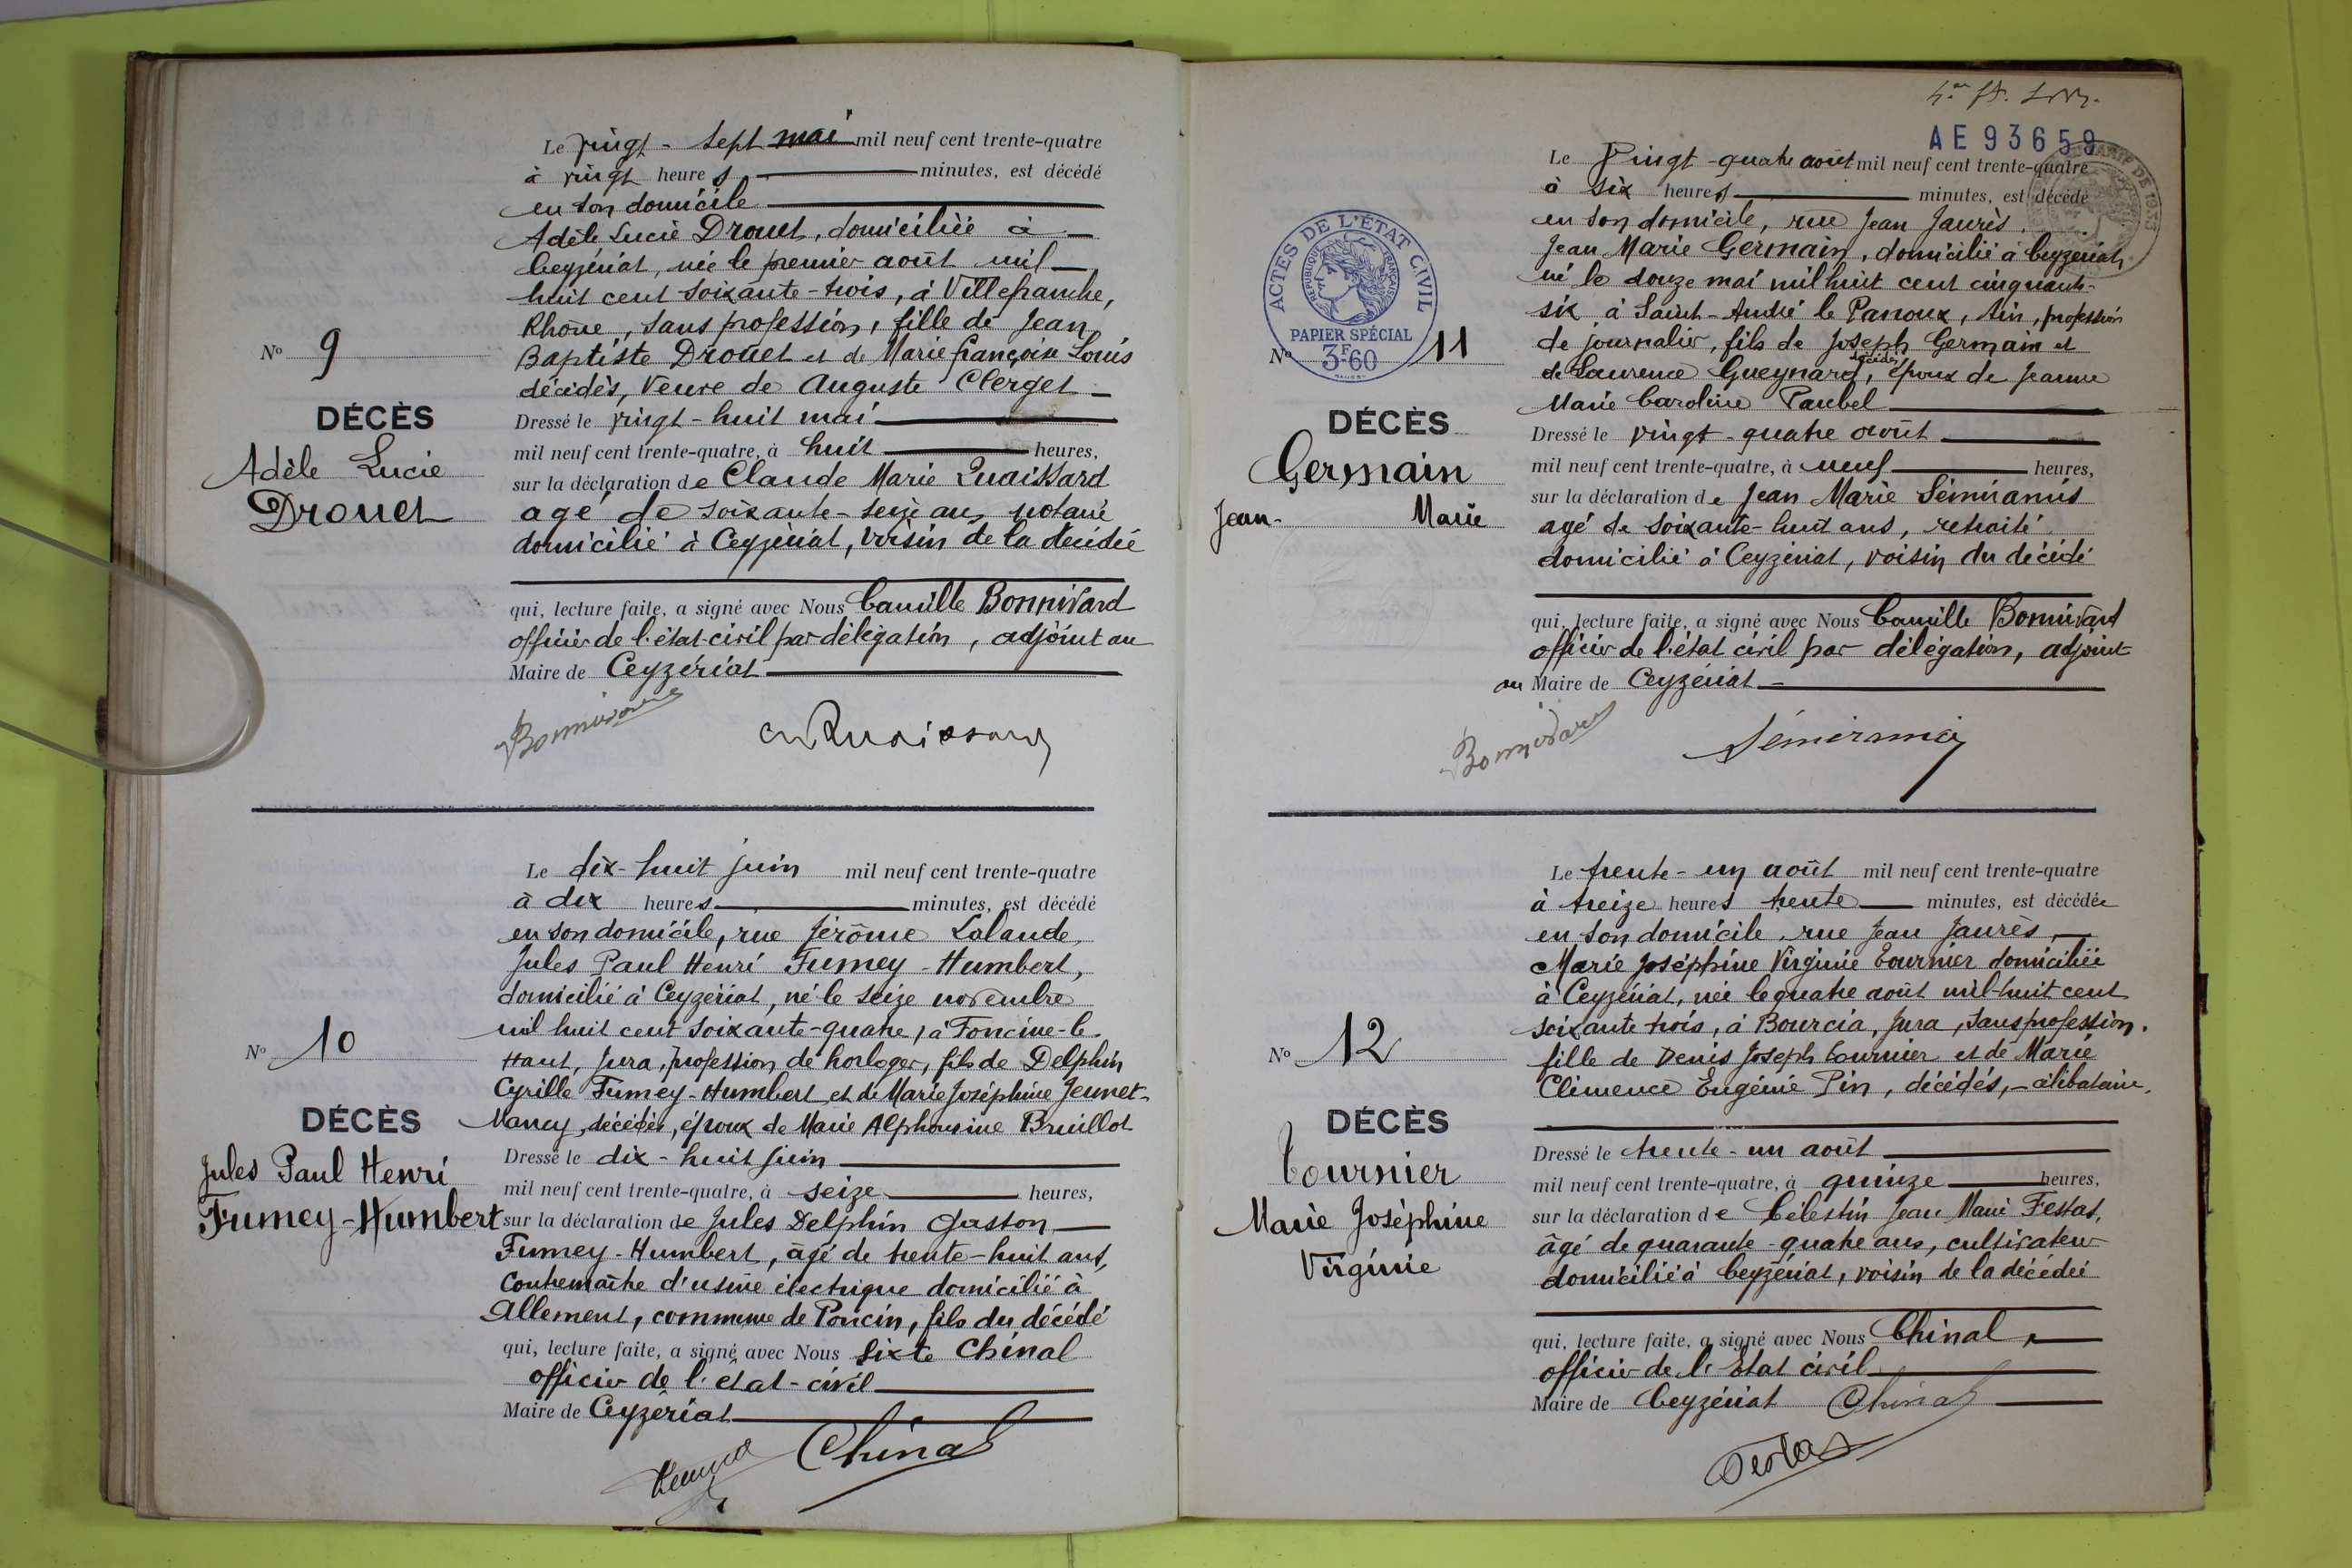 Le vingt-sept mai mil neuf cent trente-quatre
à vingt heures minutes, est décédé
en son domicile
Adèle Lucie Drouet, domiciliée à
Ceyzériat, née le premier août mil
huit cent soixante-trois, à Villefranche,
Rhône, sans profession, fille de Jean
Baptiste Drouet et de Marie Françoise Louis
décédés, veuve de Auguste Clerget
Dressé le vingt-huit mai
mil neuf cent trente-quatre, à huit heures,
sur la déclaration de Claude Marie Quaissard
agé de soixante-seize ans, notaire
domicilié à Ceyzériat, voisin de la décédée
qui, lecture faite, a signé avec Nous Camille Bonnivard
officier de l'état-civil par délégation, adjoint au
Maire de Ceyzériat
Bonnivard
Quaissard
No 9
DÉCÈS
Adèle Lucie
Drouet
Le dix-huit juin mil neuf cent trente-quatre
à dix heures minutes, est décédé
en son domicile, rue Jérôme Lalande,
Jules Paul Henri Fumey-Humbert,
domicilié à Ceyzériat, né le seize novembre
mil huit cent soixante-quatre, à Foncine-le-
Haut, Jura, profession de horloger, fils de Delphin
Cyrille Fumey-Humbert et de Marie Joséphine Jeunet-
Mancy, décédés, époux de Marie Alphonsine Bruillot
Dressé le dix-huit juin
mil neuf cent trente-quatre, à seize heures,
sur la déclaration de Jules Delphin Gaston
Fumey-Humbert, âgé de trente-huit ans,
contremaître d'usine électrique domicilié à
Allement, commune de Poncin, fils du décédé
qui, lecture faite, a signé avec Nous Sixte Chinal
officier de l'état-civil
Maire de Ceyzériat
Chinal
No 10
DÉCÈS
Jules Paul Henri
Fumey-Humbert
AE93659
Le Vingt-quatre août mil neuf cent trente-quatre
à six heures minutes, est décédé
en son domicile, rue Jean Jaurès,
Jean Marie Germain, domicilié à Ceyzériat,
né le douze mai mil huit cent cinquante-
six à Saint-André le Panoux, Ain, profession
de journalier, fils de Joseph Germain et
de Laurence Gueynard, décédés, époux de Jeanne
Marie Caroline Paubel
Dressé le vingt-quatre août
mil neuf cent trente-quatre, à neuf heures,
sur la déclaration de Jean Marie Sémiramis
agé de soixante-huit ans, retraité
domicilié à Ceyzériat, voisin du décédé
qui, lecture faite, a signé avec Nous Camille Bonnivard
officier de l'état civil par délégation, adjoint
au Maire de Ceyzériat
Bonnivard
Sémiramis
ACTES DE L'ÉTAT CIVIL
RÉPUBLIQUE FRANÇAISE
PAPIER SPÉCIAL
3F60
No 11
DÉCÈS
Germain
Jean-Marie
Le trente-un août mil neuf cent trente-quatre
à treize heures trente minutes, est décédée
en son domicile, rue Jean Jaurès,
Marie Joséphine Virginie Tournier domiciliée
à Ceyzériat, née le quatre août mil-huit cent
soixante trois, à Bourcia, Jura, sans profession,
fille de Denis Joseph Tournier et de Marie
Clémence Eugénie Pin, décédés, célibataire,
Dressé le trente-un août
mil neuf cent trente-quatre, à quinze heures,
sur la déclaration de Célestin Jean Marie Festas,
âgé de quarante-quatre ans, cultivateur
domicilié à Ceyzériat, voisin de la décédée
qui, lecture faite, a signé avec Nous Chinal,
officier de l'Etat civil
Maire de Ceyzériat Chinal
Festas
No 12
DÉCÈS
Tournier
Marie Joséphine
Virginie